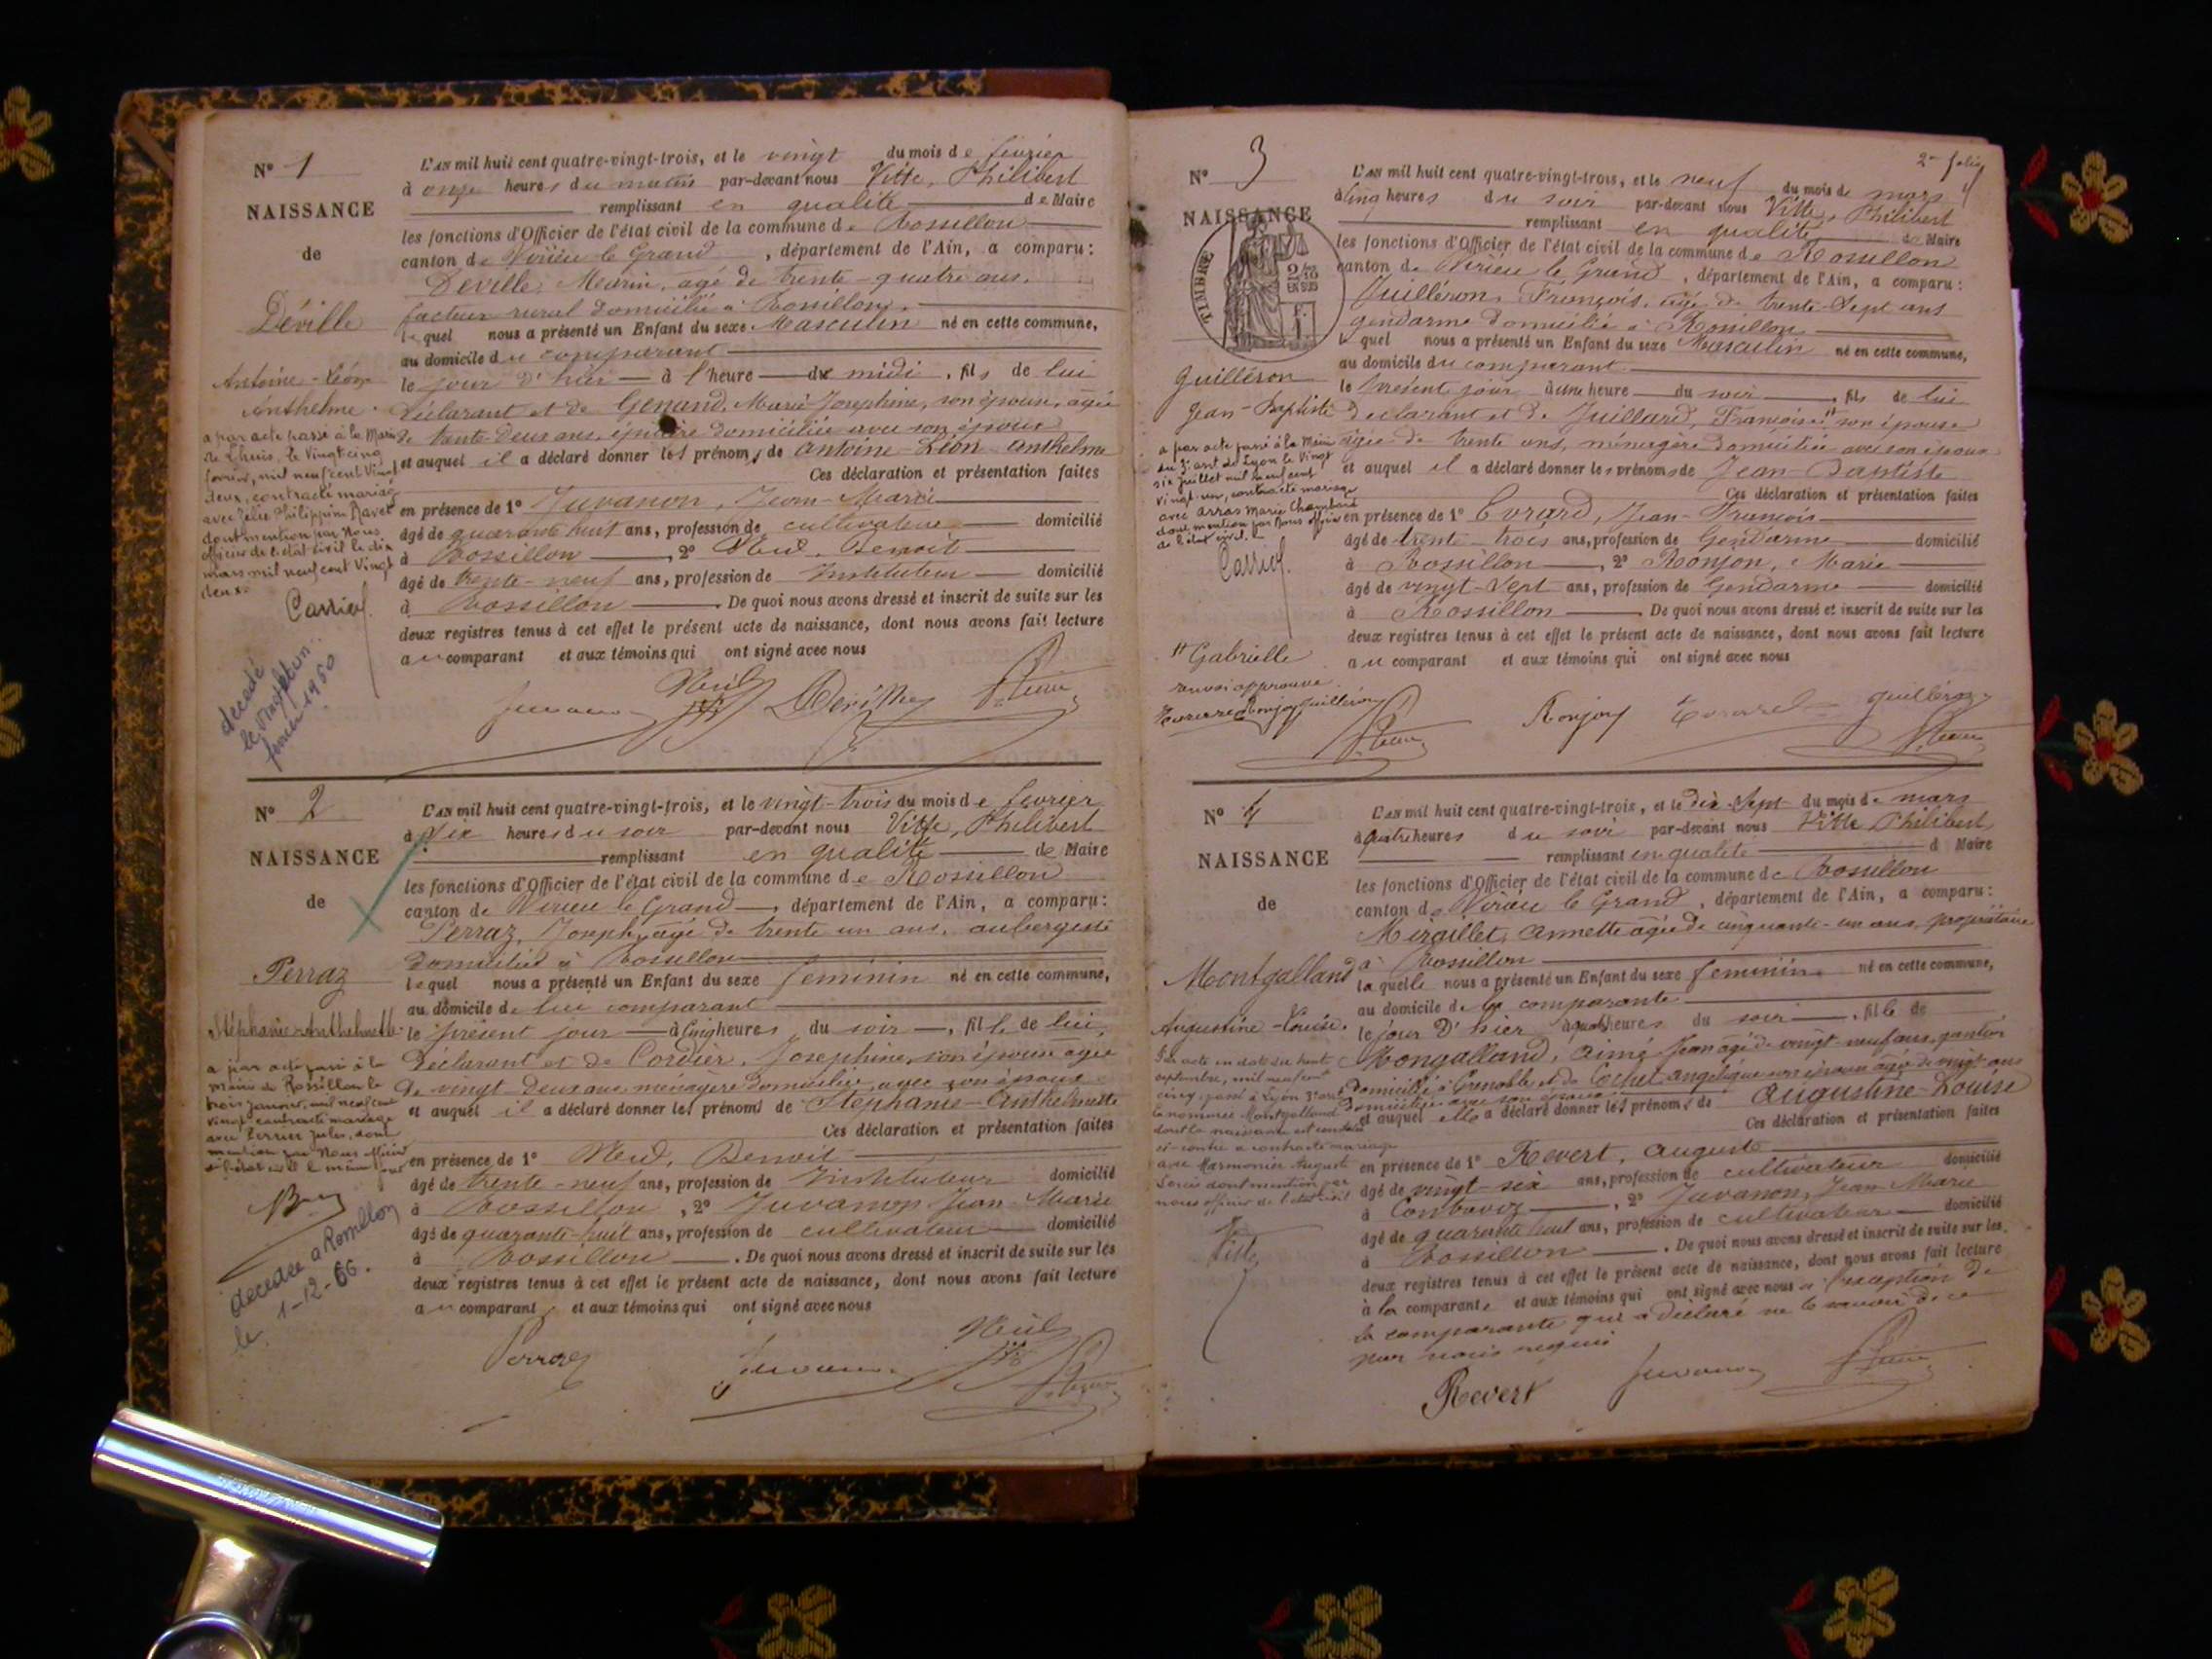 N° 1
NAISSANCE
de
Déville
Antoine-Léon
Anthelme
a par acte passé à la Mairie
de Lhuis, le Vingt cinq
février, mil neuf cent Vingt
deux, contracté mariage
avec Zélie Philippine Ravet
dont mention par Nous
officier de l'état civil le dix
mars mil neuf cent Vingt
deux.
décédé
le vingt huit
février 1950
L'AN mil huit cent quatre-vingt-trois, et le vingt du mois de février
à onze heures du matin par-devant nous Vitte, Philibert
remplissant en qualité de Maire
les fonctions d'Officier de l'état civil de la commune de Rossillon
canton de Virieu le Grand, département de l'Ain, a comparu :
Déville, Marin, agé de trente-quatre ans,
facteur rural domicilié à Rossillon,
lequel nous a présenté un Enfant du sexe Masculin né en cette commune,
au domicile du comparant
le jour d'hier à l'heure de midi, fils de lui
déclarant et de Genand, Marie Josephine, son épouse, agée
de trente-deux ans, domiciliée avec son époux
et auquel il a déclaré donner les prénoms de Antoine-Léon-Anthelme
Ces déclaration et présentation faites
en présence de 1° Juvanon, Jean-Marie
âgé de quarante huit ans, profession de cultivateur domicilié
à Rossillon, 2° Benoit
âgé de trente-neuf ans, profession de Instituteur domicilié
à Rossillon. De quoi nous avons dressé et inscrit de suite sur les
deux registres tenus à cet effet le présent acte de naissance, dont nous avons fait lecture
au comparant et aux témoins qui ont signé avec nous
Juvanon Déville
N° 2
NAISSANCE
de
Perraz
Stéphanie-Anthelmette
a par acte passé à la
mairie de Rossillon le
trois janvier, mil neuf cent
vingt contracté mariage
avec Perrier Jules, dont
mention par Nous officier
de l'état civil le même jour
décédée à Rossillon
le 1-12-66.
L'AN mil huit cent quatre-vingt-trois, et le vingt-trois du mois de février
à six heures du soir par-devant nous Vitte, Philibert
remplissant en qualité de Maire
les fonctions d'Officier de l'état civil de la commune de Rossillon
canton de Virieu le Grand, département de l'Ain, a comparu :
Perraz, Joseph, agé de trente un ans, aubergiste
domicilié à Rossillon
lequel nous a présenté un Enfant du sexe féminin né en cette commune,
au domicile de lui comparant
le présent jour à cinq heures du soir, fille de lui,
déclarant et de Cordier, Josephine, son épouse agée
de vingt deux ans ménagère domiciliée avec son époux
et auquel il a déclaré donner les prénoms de Stéphanie-Anthelmette
Ces déclaration et présentation faites
en présence de 1° Benoit
âgé de trente-neuf ans, profession de Instituteur domicilié
à Rossillon, 2° Juvanon Jean Marie
âgé de quarante-huit ans, profession de cultivateur domicilié
à Rossillon. De quoi nous avons dressé et inscrit de suite sur les
deux registres tenus à cet effet le présent acte de naissance, dont nous avons fait lecture
au comparant et aux témoins qui ont signé avec nous
Perraz Juvanon
2e folio
N° 3
NAISSANCE
TIMBRE
2/10
EN SUS
Guilléron
Jean-Baptiste
a par acte passé à la Mairie
du 3e arrt de Lyon le Vingt
six juillet mil neuf cent
vingt-un, contracté mariage
avec Arras Marie Chambard
dont mention par Nous officier
de l'état civil.
" Gabrielle
renvoi approuvé
L'AN mil huit cent quatre-vingt-trois, et le neuf du mois de mars
à cinq heures du soir par-devant nous Vitte, Philibert
remplissant en qualité de Maire
les fonctions d'Officier de l'état civil de la commune de Rossillon
canton de Virieu le Grand, département de l'Ain, a comparu :
Guilléron, François, agé de trente-sept ans
gendarme domicilié à Rossillon
lequel nous a présenté un Enfant du sexe Masculin né en cette commune,
au domicile du comparant
le présent jour à une heure du soir, fils de lui
déclarant et de Juillard, Françoise " son épouse
agée de trente ans, ménagère domiciliée avec son époux
et auquel il a déclaré donner les prénoms de Jean-Baptiste
Ces déclaration et présentation faites
en présence de 1° Evrard, Jean-François
âgé de trente-trois ans, profession de Gendarme domicilié
à Rossillon, 2° Ronjon, Marie
âgé de vingt-sept ans, profession de Gendarme domicilié
à Rossillon. De quoi nous avons dressé et inscrit de suite sur les
deux registres tenus à cet effet le présent acte de naissance, dont nous avons fait lecture
au comparant et aux témoins qui ont signé avec nous
Ronjon Evrard Guilléron
N° 4
NAISSANCE
de
Montgalland
Augustine-Louise.
Par acte en date du huit
septembre, mil neuf cent
cinq, passé à Lyon 3e arrt
la nommée Montgalland
dont la naissance est constatée
ci-contre a contracté mariage
avec Marmonier Auguste
Louis dont mention par
nous officier de l'état civil
Vitte
L'AN mil huit cent quatre-vingt-trois, et le dix-sept du mois de mars
à quatre heures du soir par-devant nous Vitte Philibert
remplissant en qualité d Maire
les fonctions d'Officier de l'état civil de la commune de Rossillon
canton de Virieu le Grand, département de l'Ain, a comparu :
Miraillet, Annette agée de cinquante-un ans, propriétaire
à Rossillon
laquelle nous a présenté un Enfant du sexe féminin né en cette commune,
au domicile de la comparante
le jour d'hier à quatre heures du soir, fille de
Mongalland, Aimé Jean agé de vingt-neuf ans, gantier
domicilié à Grenoble et de Cochet angélique son épouse agée de vingt ans
domiciliée avec son époux
et auquel elle a déclaré donner les prénoms de Augustine-Louise
Ces déclaration et présentation faites
en présence de 1° Revert, Auguste
âgé de vingt-six ans, profession de cultivateur domicilié
à Contrevoz, 2° Juvanon, Jean Marie
âgé de quarante huit ans, profession de cultivateur domicilié
à Rossillon. De quoi nous avons dressé et inscrit de suite sur les
deux registres tenus à cet effet le présent acte de naissance, dont nous avons fait lecture
à la comparante et aux témoins qui ont signé avec nous à l'exception de
la comparante qui a déclaré ne le savoir de ce
par nous requis
Revert Juvanon